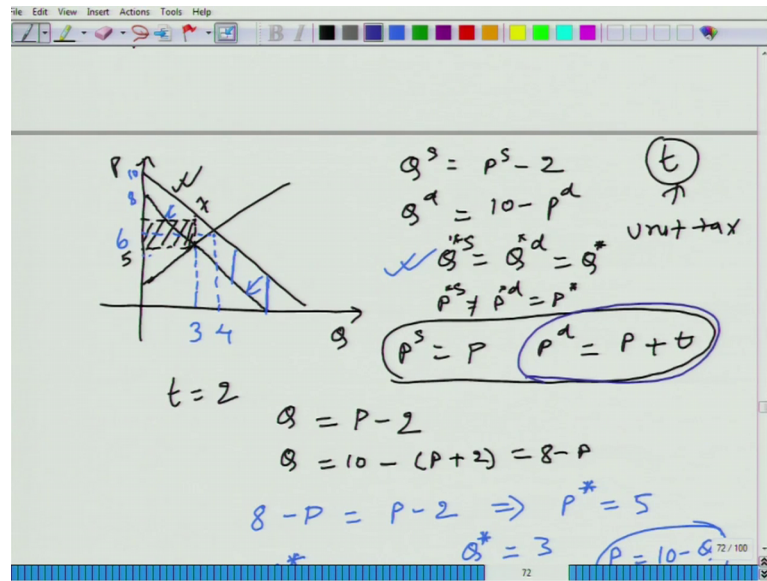 File Edit View Insert Actions Tools Help
B I
P
10
8
6
5
x
3 4
Q
Q^s = P^s - 2
Q^d = 10 - P^d
t
unit tax
Q*^s = Q*^d = Q*
P*^s ≠ P*^d = P*
P^s = P P^d = P + t
t = 2
Q = P - 2
Q = 10 - (P + 2) = 8 - P
8 - P = P - 2 ⇒ P* = 5
Q* = 3
P = 10 - Q
72 / 100
72